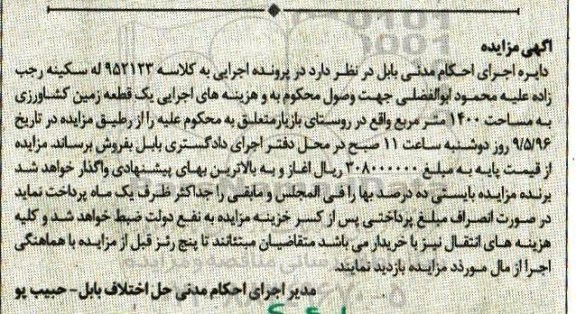 اگهی مزایده
دایره اجرای احکام مدنی بابل در نظر دارد در پرونده اجرایی به کلاسه ۹۵۲۱۲۳ له سکینه رجب
زاده علیه محمود ابوالفضلی جهت وصول محکوم به و هزینه های اجرایی یک قطعه زمین کشاورزی
به مساحت ۱۴۰۰ متر مربع واقع در روستای بازیار متعلق به محکوم علیه را از رطیق مزایده در تاریخ
۹/۵/۹۶ روز دوشنبه ساعت ۱۱ صبح در محل دفتر اجرای دادگستری بابل بفروش برساند. مزایده
از قیمت پایه به مبلغ ۳۰۸۰۰۰۰۰۰ ریال اغاز و به بالاترین بهای پیشنهادی واگذار خواهد شد
برنده مزایده بایستی ده درصد بها را فی المجلس و مابقی را حداکثر ظرف یک ماه پرداخت نماید
در صورت انصراف مبلغ پرداختی پس از کسر خزینه مزایده به نفع دولت ضبط خواهد شد و کلیه
هزینه های انتقال نیز با خریدار می باشد متقاضیان میتئانند تا پنج رئز قبل از مزایده با هماهنگی
اجرا از مال موردد مزایده بازدید نمایند
مدیر اجرای احکام مدنی حل اختلاف بابل- حبیب پو